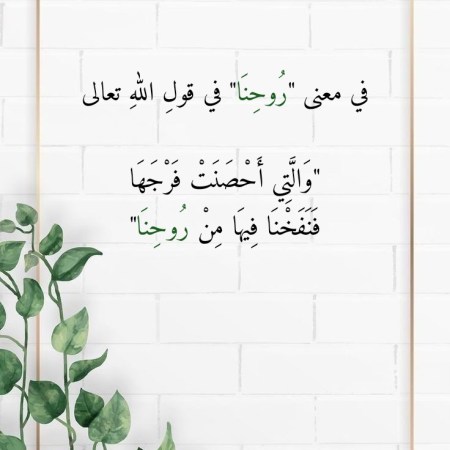 في معنى "رُوحِنَا" في قولِ اللهِ تعالى
"وَالَّتِي أَحْصَنَتْ فَرْجَهَا
فَنَفَخْنَا فِيهَا مِنْ رُوحِنَا"